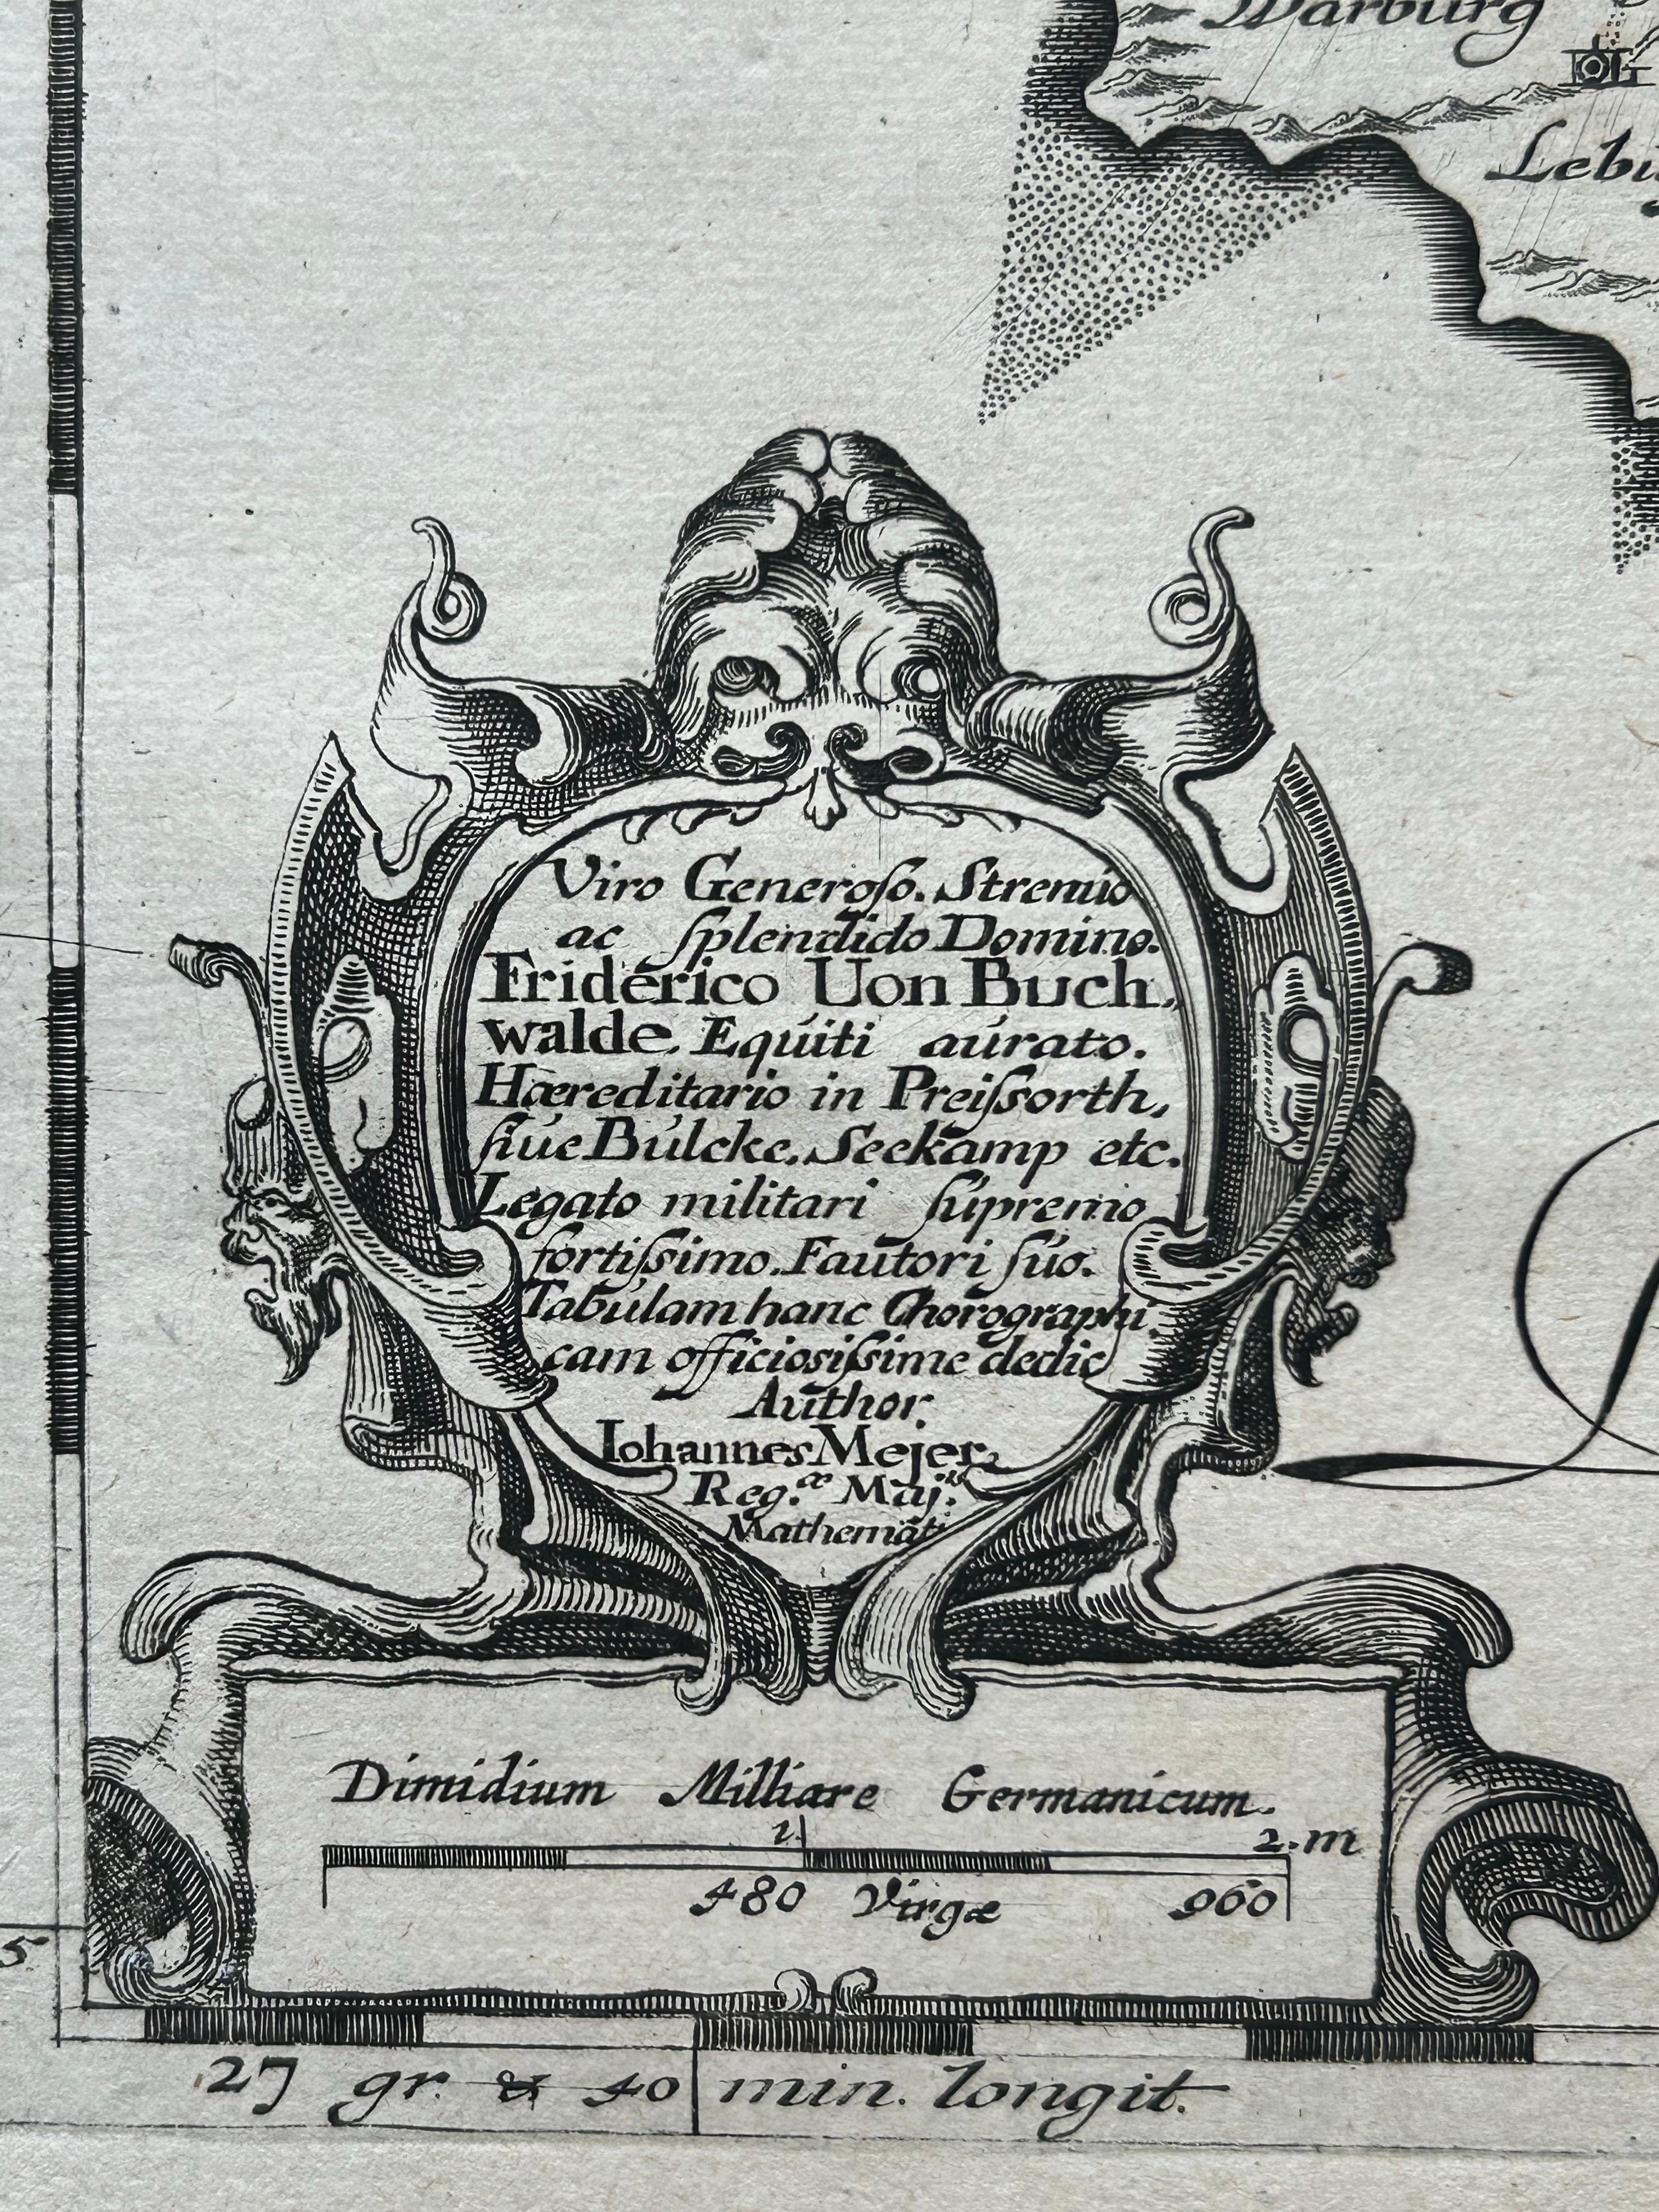 Warburg
Viro Generoſo. Strenúo
ac ſplendido Domino.
Friderico Uon Buch,
walde. Equiti aúrato.
Hæreditario in Preiſsorth,
ſiúe Búlcke. Seekamp etc.
Legato militari ſúpremo
fortiſsimo. Fautori ſúo.
Tabúlam hanc Chorographi,
cam officiosiſsime dedic
Aúthor.
Iohannes Mejer,
Reg.æ Maj.tis
Mathemāt:
Dimidium Milliare Germanicum.
1. 2. m
480 Virgæ 960
5.
27 gr. & 40 min. longit.